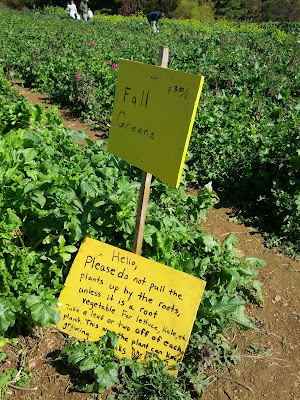 Fall $3.00/
Greens
Hello,
Please do not pull the
plants up by the roots,
unless it is a root
vegetable. For lettuce, Kale, etc
take a leaf or two off of each
plant. This the plant can keep
growing.